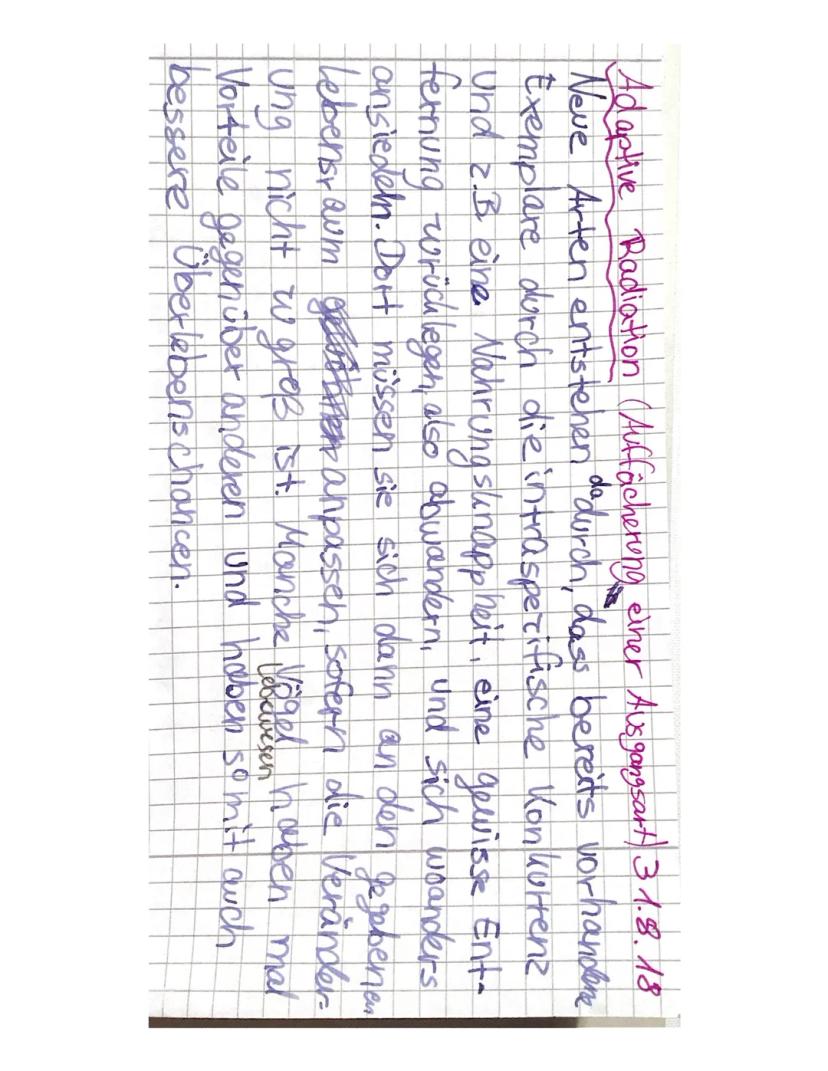 Adaptive Radiation (Auffächerung einer Ausgangsart) 31.8.18
Neue Arten entstehen dadurch, dass bereits vorhandene
Exemplare durch die intraspezifische Konkurrenz
und z.B eine Nahrungsknappheit, eine gewisse Ent-
fernung zurücklegen, also abwandern, und sich woanders
ansiedeln. Dort müssen sie sich dann an den gegebenen
Lebensraum anpassen, sofern die Veränder-
ung nicht zu groß ist. Manche Vögel haben mal
Lebewesen
Vorteile gegenüber anderen und haben somit auch
bessere Überlebenschancen.